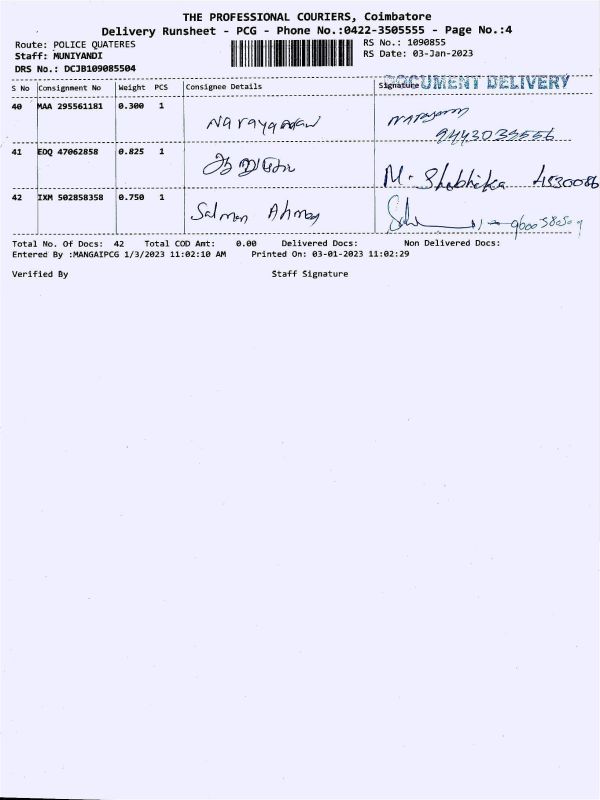 THE PROFESSIONAL COURIERS, Coimbatore
Delivery Runsheet - PCG - Phone No.:0422-3505555 - Page No.:4
Route: POLICE QUATERES
RS No.: 1090855
Staff: MUNIYANDI
RS Date: 03-Jan-2023
DRS No.: DCJB109085504
DOCUMENT DELIVERY
S No Consignment No Weight PCS Consignee Details Signature
40 MAA 295561181 0.300 1 Narayanan
41 EDQ 47062858 0.825 1 M. Shobhika
42 IXM 502858358 0.750 1 Salman Ahmed
Total No. Of Docs: 42 Total COD Amt: 0.00 Delivered Docs: Non Delivered Docs:
Entered By :MANGAIPCG 1/3/2023 11:02:10 AM Printed On: 03-01-2023 11:02:29
Verified By Staff Signature